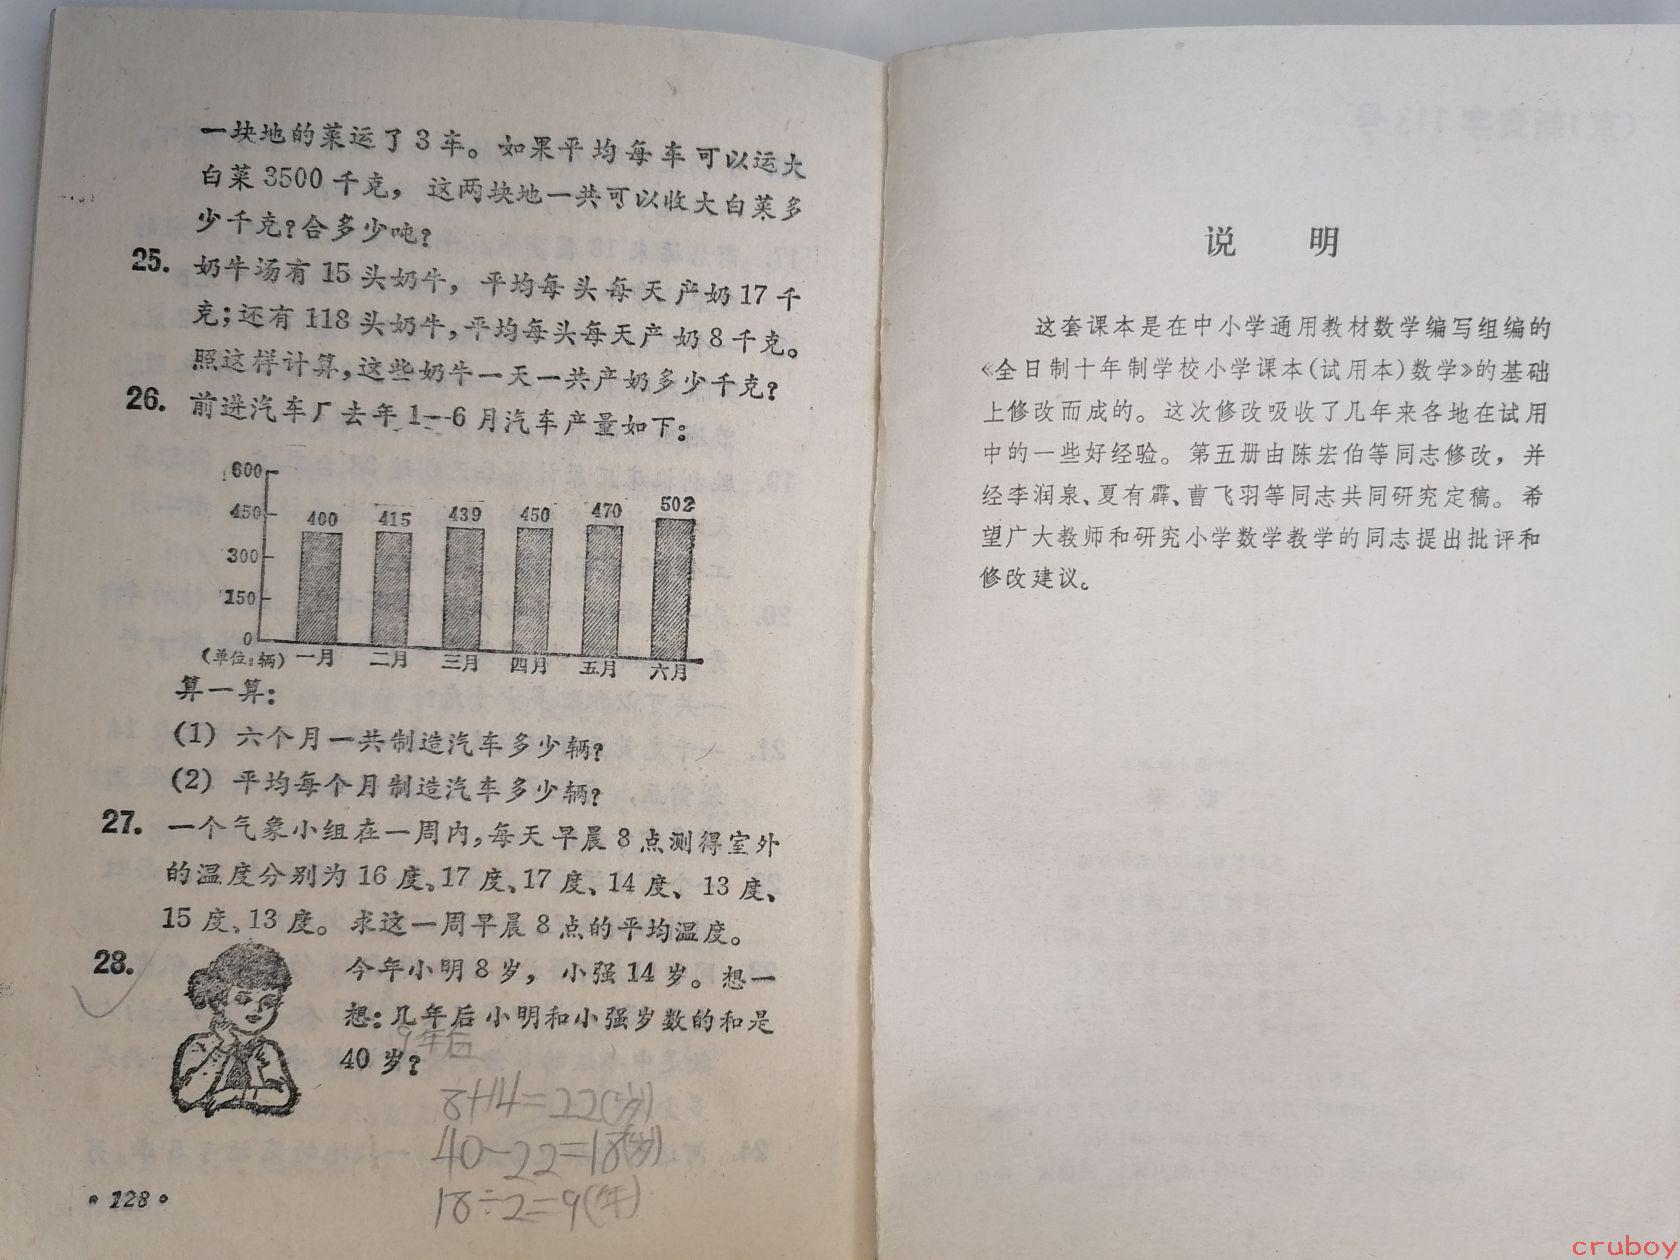 一块地的菜运了3车。如果平均每车可以运大
白菜3500千克，这两块地一共可以收大白菜多
少千克?合多少吨?
25. 奶牛场有15头奶牛，平均每头每天产奶17千
克；还有118头奶牛，平均每头每天产奶8千克。
照这样计算，这些奶牛一天一共产奶多少千克?
26. 前进汽车厂去年1—6月汽车产量如下：
600
450
300
150
0
400 415 439 450 470 502
(单位：辆) 一月 二月 三月 四月 五月 六月
算一算：
(1) 六个月一共制造汽车多少辆?
(2) 平均每个月制造汽车多少辆?
27. 一个气象小组在一周内，每天早晨8点测得室外
的温度分别为16度、17度、17度、14度、13度、
15度、13度。求这一周早晨8点的平均温度。
28. 今年小明8岁，小强14岁。想一
想：几年后小明和小强岁数的和是
9年后
40岁?
8+14=22(岁)
40-22=18(岁)
18÷2=9(年)
•128•
说 明
这套课本是在中小学通用教材数学编写组编的
《全日制十年制学校小学课本(试用本)数学》的基础
上修改而成的。这次修改吸收了几年来各地在试用
中的一些好经验。第五册由陈宏伯等同志修改，并
经李润泉、夏有霖、曹飞羽等同志共同研究定稿。希
望广大教师和研究小学数学教学的同志提出批评和
修改建议。
cruboy